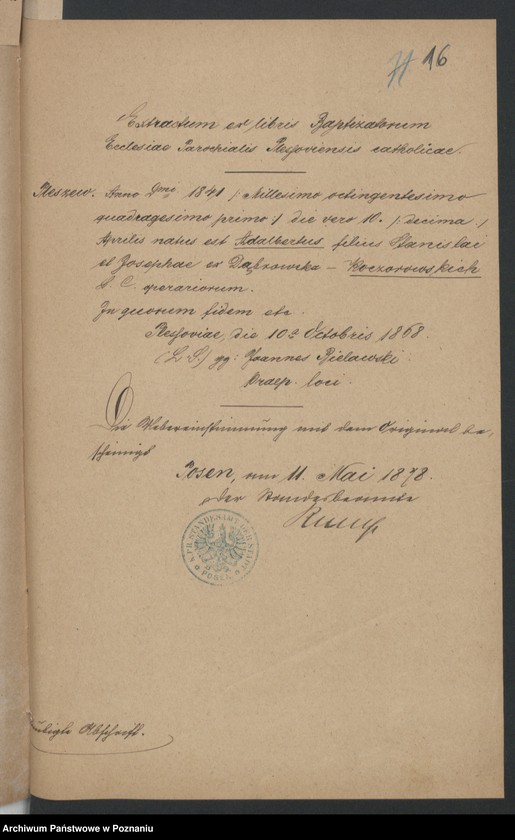 16
Extractum ex libris Baptizatorum
Ecclesiae Parochialis Plesoviensis catholicae.
Pleszew. Anno Dmni 1841 /: Millesimo octingentesimo
quadragesimo primo :/ die vero 10. /: decima :/
Aprilis natus est Adalbertus filius Stanislai
et Josephae ex Dąbrowska – Koczorowskich
L. C. operariorum.
In quorum fidem etc.
Plesoviae, die 10a Octobris 1868
(L. S.) gg: Joannes Bielawski
Praep. loci.
Die Uebereinstimmung mit dem Original be-
scheinigt
Posen, am 11. Mai 1878.
Der Standesbeamte
K. PR. STANDESAMT DER STADT POSEN
Abschrift.
Archiwum Państwowe w Poznaniu